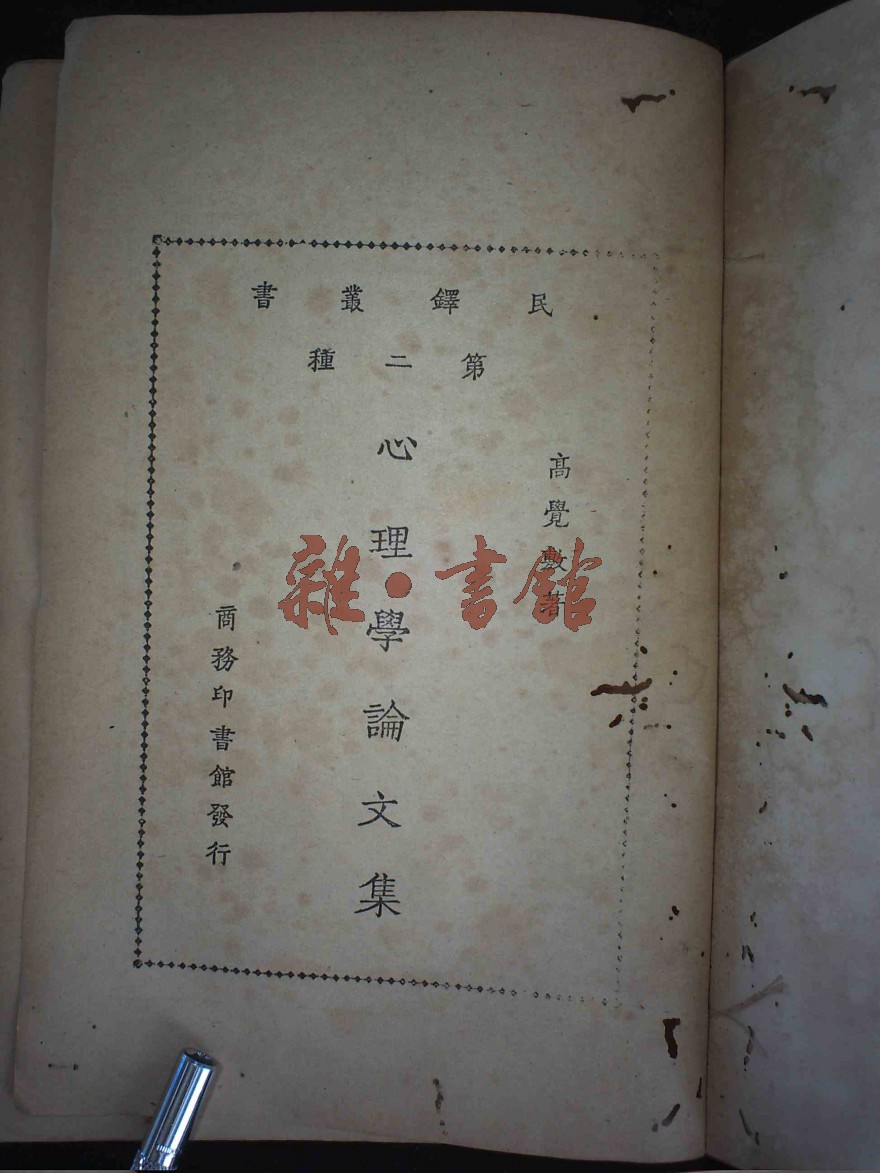 民鐸叢書
第二種
高覺敷著
心理學論文集
商務印書館發行
雜·書館